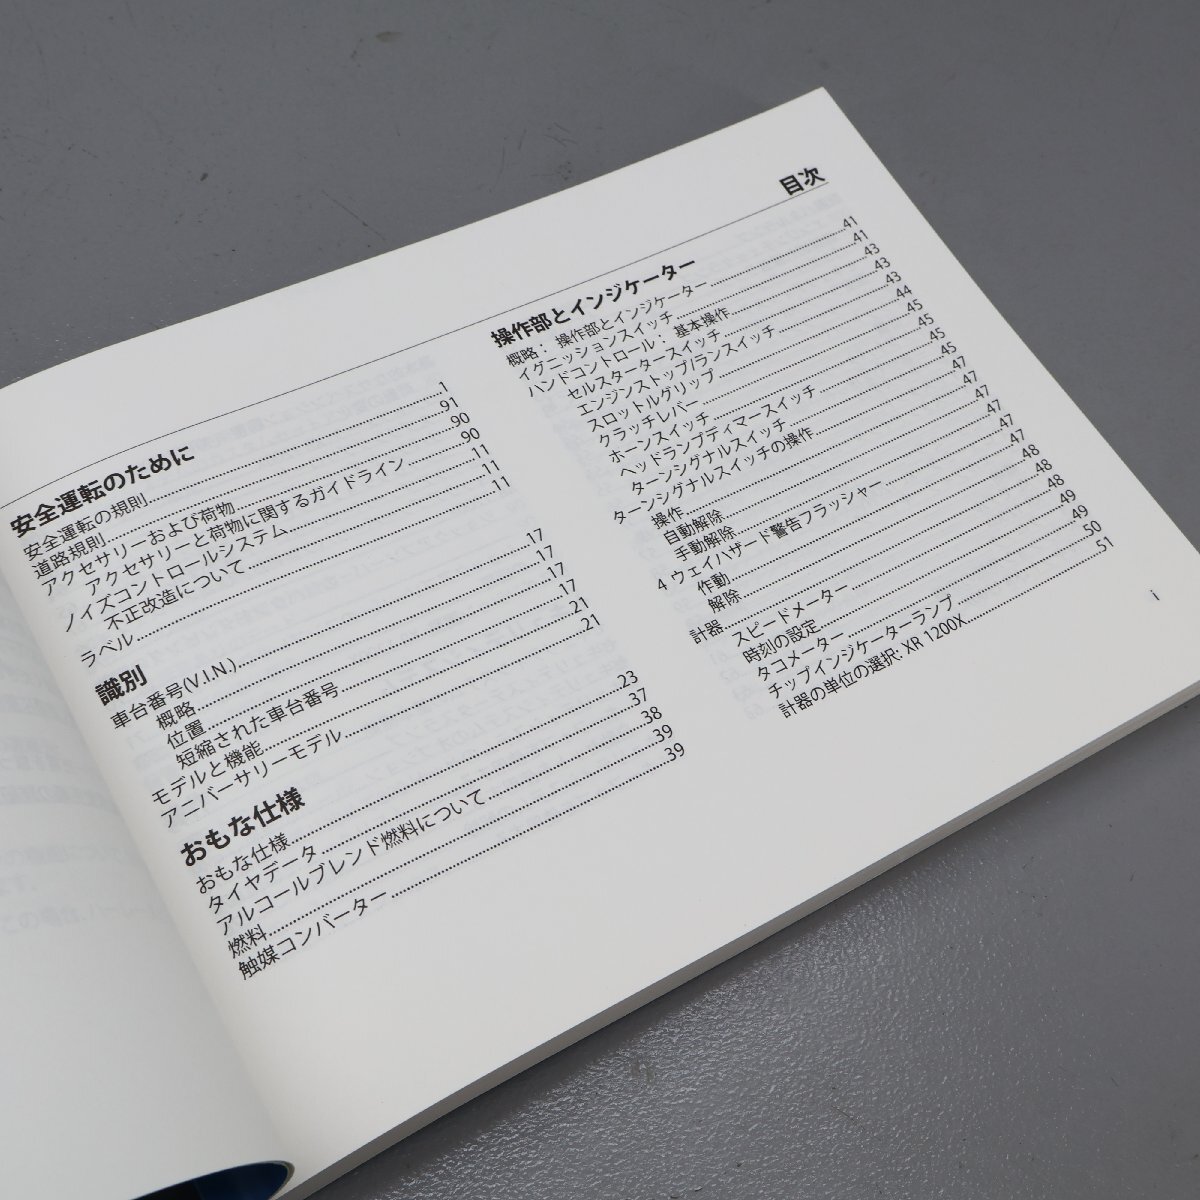 目次
安全運転のために
安全運転の規則 1
道路規則 91
アクセサリーおよび荷物 90
アクセサリーと荷物に関するガイドライン 90
ノイズコントロールシステム 11
不正改造について 11
ラベル 11
識別
車台番号(V.I.N.) 17
概略 17
位置 17
短縮された車台番号 17
モデルと機能 21
アニバーサリーモデル 21
おもな仕様
おもな仕様 23
タイヤデータ 37
アルコールブレンド燃料について 38
燃料 39
触媒コンバーター 39
操作部とインジケーター
概略: 操作部とインジケーター 41
イグニッションスイッチ 41
ハンドコントロール: 基本操作 43
セルスタータースイッチ 43
エンジンストップ/ランスイッチ 43
スロットルグリップ 44
クラッチレバー 45
ホーンスイッチ 45
ヘッドランプディマースイッチ 45
ターンシグナルスイッチ 45
ターンシグナルスイッチの操作 47
操作 47
自動解除 47
手動解除 47
4 ウェイハザード警告フラッシャー 47
作動 47
解除 48
計器 48
スピードメーター 48
時刻の設定 49
タコメーター 49
チップインジケーターランプ 50
計器の単位の選択: XR 1200X 51
i